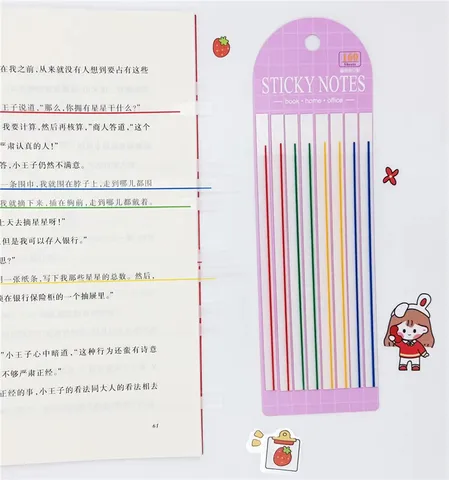 在我之前，从来就没有人想到要占有这些
王子说道，“那么，你拥有星星干什么？”
我要计算，然后再核算，”商人答道，“这个
严肃认真的人！”
答，小王子仍然不满意。
一条围巾，我就围在脖子上，走到哪儿都围
我就摘下来，插在胸前，走到哪儿都戴着。
上天去摘星星呀！”
但是我可以存入银行。”
思？”
用一张纸条，写下我那些星星的总数。然后，
锁在银行保险柜的一个抽屉里。”
”小王子心中暗道，“这种行为还蛮有诗意
不够严肃正经。”
正经的事，小王子的看法同大人的看法相去
61
160
Sheets
STICKY NOTES
book · home · office